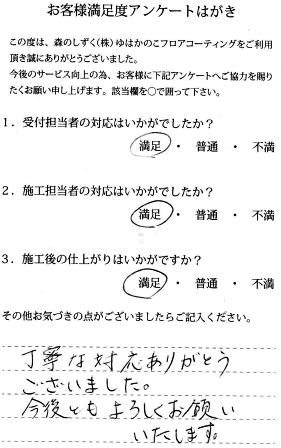 お客様満足度アンケートはがき
この度は、森のしずく(株)ゆはかのこフロアコーティングをご利用
頂き誠にありがとうございました。
今後のサービス向上の為、お客様に下記アンケートへご協力を賜り
たくお願い申し上げます。該当欄を○で囲って下さい。
1．受付担当者の対応はいかがでしたか？
満足 ・ 普通 ・ 不満
2．施工担当者の対応はいかがでしたか？
満足 ・ 普通 ・ 不満
3．施工後の仕上がりはいかがですか？
満足 ・ 普通 ・ 不満
その他お気づきの点がございましたらご記入ください。
丁寧な対応ありがとう
ございました。
今後ともよろしくお願い
いたします。